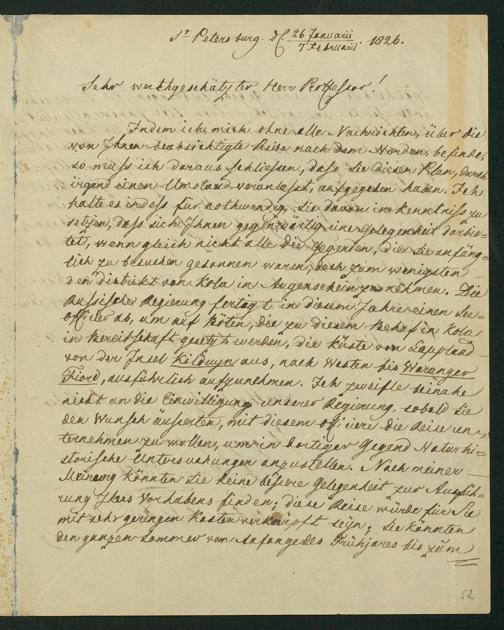 St Petersburg. d. 26 Januarii / 7 Februarii 1826.
Sehr werthgeschätzter Herr Professor!
Indem ich mich ohne alle Nachrichten, über die
von Ihnen beabsichtigte Reise nach dem Norden, befinde,
so muss ich daraus schliessen, dass Sie diesen Plan, durch
irgend einen Umstand veranlasst, aufgegeben haben. Ich
halte es indess für nothwendig, Sie davon in Kenntniss zu
setzen, dass sich Ihnen gegenwärtig eine Gelegenheit darbie-
tet, wenn gleich nicht alle die Gegenden, die Sie anfäng-
lich zu besuchen gesonnen waren, doch zum wenigsten
den district von Kola in Augenschein zu nehmen. Die
Russische Regierung fertigt in diesem Jahre einen See-
officier ab, um auf Böten, die zu diesem Behuf in Kola
in Bereitschaft gesetzt werden, die Küste von Lappland
von der Insel Kilduyn aus, nach Westen bis Waranger
Fiord, ausführlich aufzunehmen. Ich zweifle beinahe
nicht an die Einwilligung unserer Regierung, sobald Sie
den Wunsch äuserten, mit diesem officiere die Reise un-
ternehmen zu wollen, um in dortiger Gegend Naturhi-
storische Untersuchungen anzustellen. Nach meiner
Meinung könnten Sie keine bessere Gelegenheit zur Ausfüh-
rung Ihres Vorhabens finden; diese Reise würde für Sie
mit sehr geringen Kosten verknüpft seyn; Sie könnten
den ganzen Sommer von Anfange des Frühjares bis zum
52